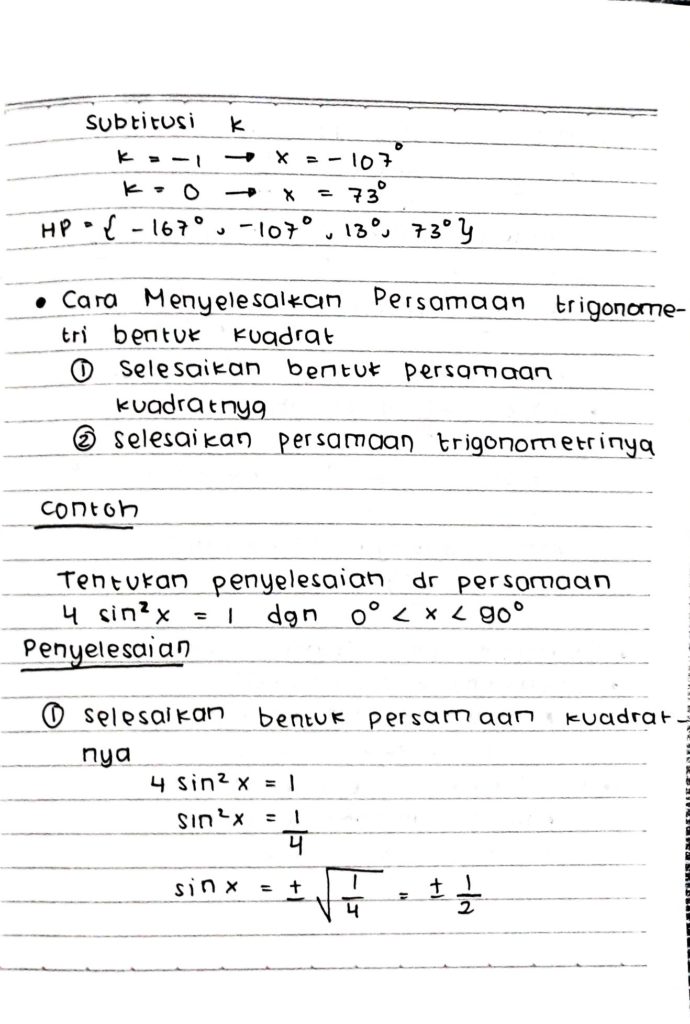 Subtitusi k
k = -1 → x = -107°
k = 0 → x = 73°
HP = { -167°, -107°, 13°, 73° }
• Cara Menyelesaikan Persamaan trigonome-
tri bentuk kuadrat
① Selesaikan bentuk persamaan
kuadratnya
② Selesaikan persamaan trigonometrinya
Contoh
Tentukan penyelesaian dr persamaan
4 sin²x = 1 dgn 0° < x < 90°
Penyelesaian
① Selesaikan bentuk persamaan kuadrat-
nya
4 sin² x = 1
sin²x = 1/4
sin x = ± √(1/4) = ± 1/2